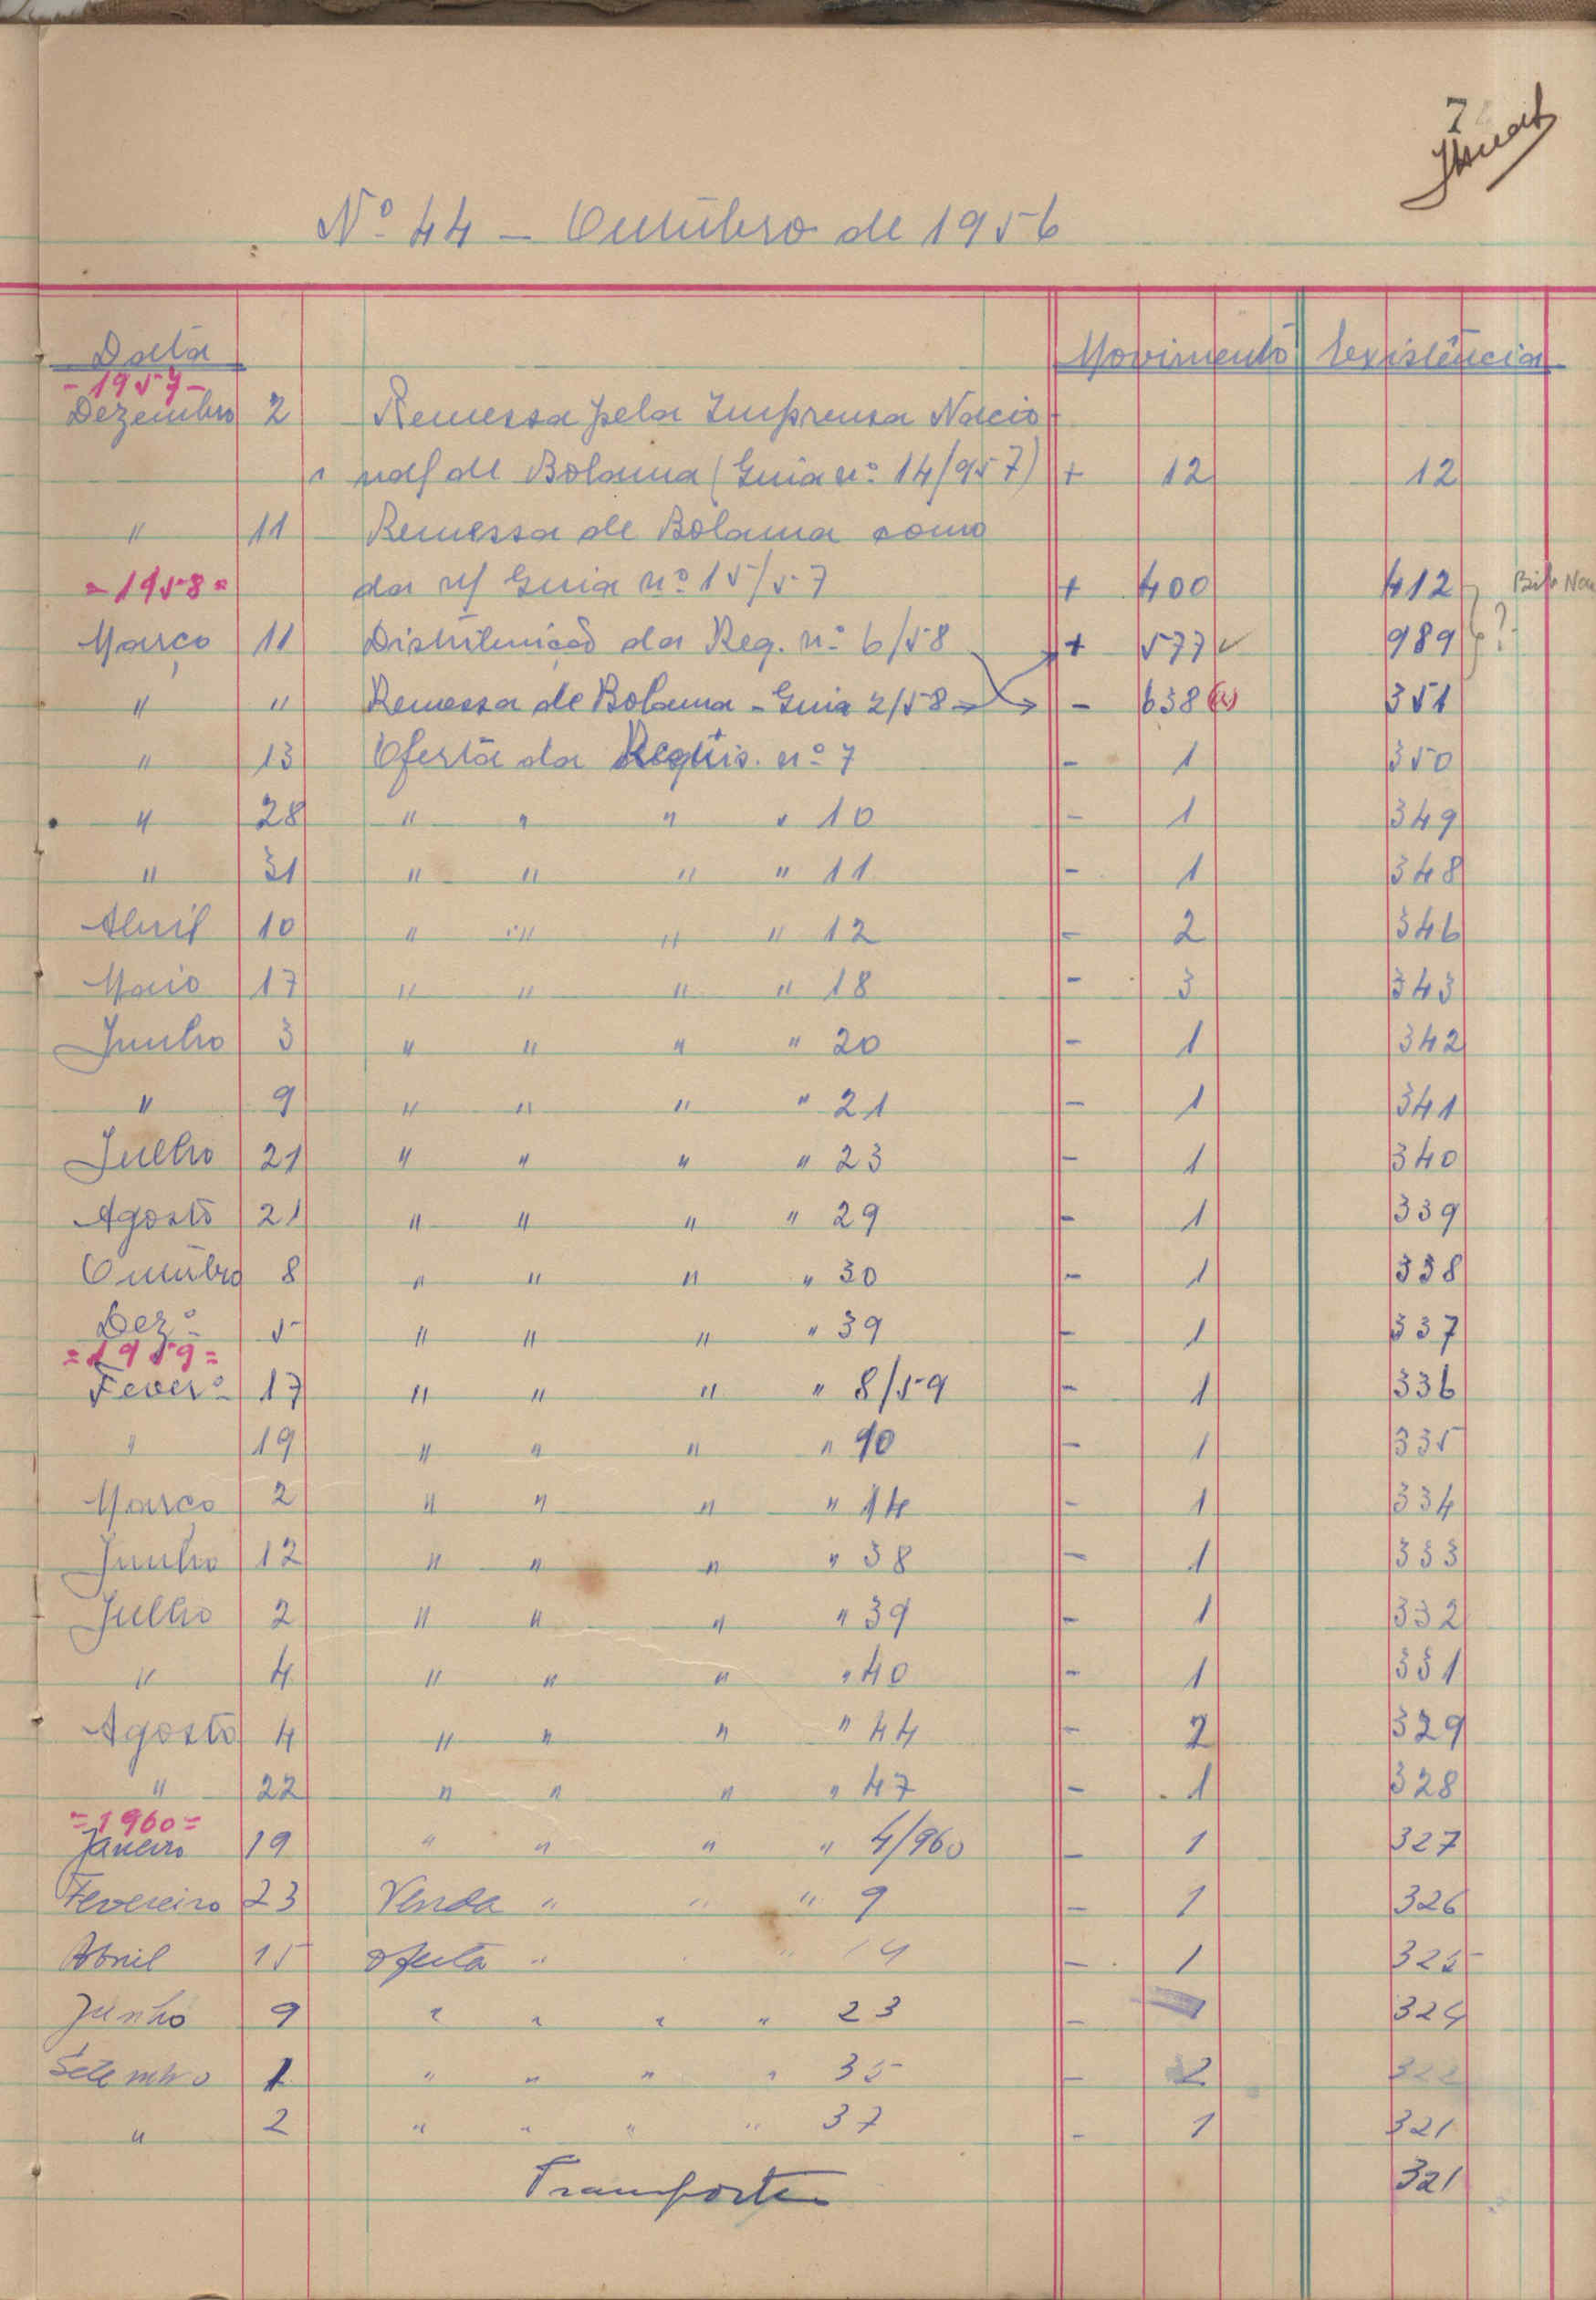 7
Nº 44 – Outubro de 1956
Data Movimento Existência
- 1957 -
Dezembro 2 Remessa pela Imprensa Nacio-
nal de Bolama (Guia nº 14/957) + 12 12
" 11 Remessa de Bolama como
= 1958 = da n/ Guia nº 15/57 + 400 412
Março 11 Distribuição da Req. nº 6/58 + 577 ✓ 989 ?
" " Remessa de Bolama - Guia 2/58 → - 638 351
" 13 Oferta da Requis. nº 7 - 1 350
" 28 " " " " 10 - 1 349
" 31 " " " " 11 - 1 348
Abril 10 " " " " 12 - 2 346
Maio 17 " " " " 18 - 3 343
Junho 3 " " " " 20 - 1 342
" 9 " " " " 21 - 1 341
Julho 21 " " " " 23 - 1 340
Agosto 21 " " " " 29 - 1 339
Outubro 8 " " " " 30 - 1 338
Dezº 5 " " " " 39 - 1 337
= 1959 =
Feverº 17 " " " " 8/59 - 1 336
" 19 " " " " 10 - 1 335
Março 2 " " " " 14 - 1 334
Junho 12 " " " " 38 - 1 333
Julho 2 " " " " 39 - 1 332
" 4 " " " " 40 - 1 331
Agosto 4 " " " " 44 - 2 329
" 22 " " " " 47 - 1 328
= 1960 =
Janeiro 19 " " " " 4/960 - 1 327
Fevereiro 23 Venda " " " 9 - 1 326
Abril 15 Oferta " " " 14 - 1 325
Junho 9 " " " " 23 - 324
Setembro 1 " " " " 35 - 2 322
" 2 " " " " 37 - 1 321
Transporte 321